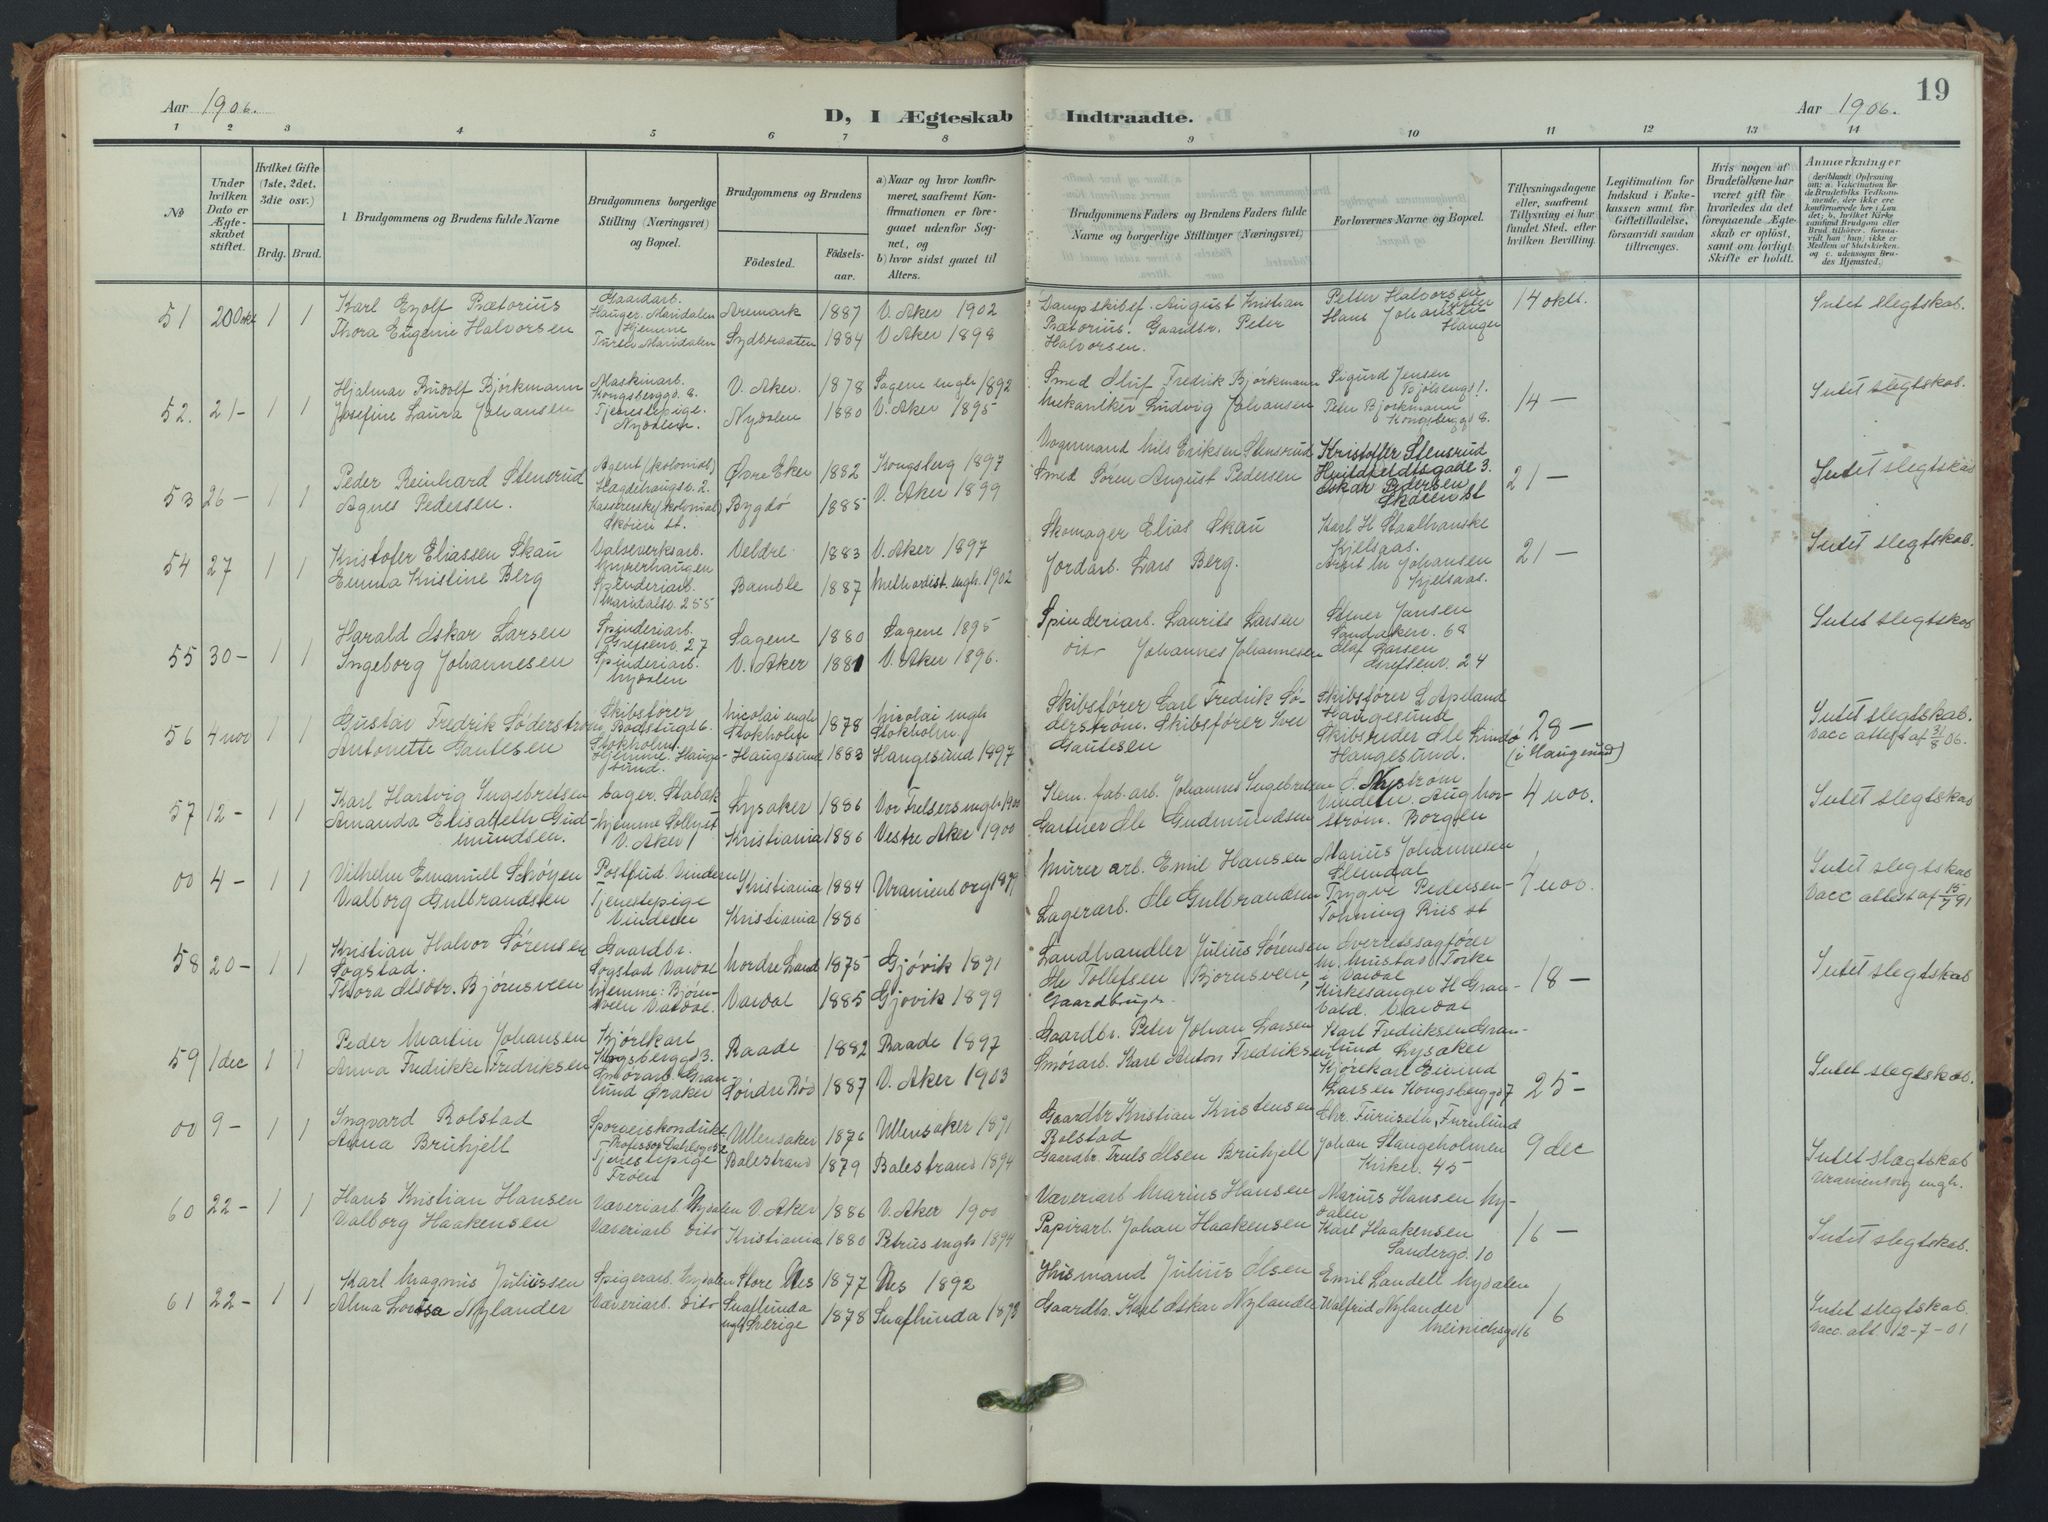 19
Aar 1906.
D, I Ægteskab Indtraadte.
Aar 1906.
1 2 3 4 5 6 7 8 9 10 11 12 13 14
No
Under hvilken Dato er Ægteskabet stiftet.
Hvilket Gifte (1ste, 2det, 3die osv.)
Brdg. Brud.
1. Brudgommens og Brudens fulde Navne
Brudgommens borgerlige Stilling (Næringsvei) og Bopæl.
Brudgommens og Brudens
Fødested.
Fødselsaar.
a) Naar og hvor konfirmeret, saafremt Konfirmationen er foregaaet udenfor Sognet, og
b) hvor sidst gaaet til Alters.
Brudgommens Faders og Brudens Faders fulde Navne og borgerlige Stillinger (Næringsvei)
Forlovernes Navne og Bopæl.
Tillysningsdagene eller, saafremt Tillysning ei har fundet Sted, efter hvilken Bevilling.
Legitimation for Indskud i Enkekassen samt for Giftetilladelse, forsaavidt saadan tiltrænges.
Hvis nogen af Brudefolkene har været gift før hvorledes da det foregaaende Ægteskab er opløst, samt om lovligt Skifte er holdt.
Anmærkninger
(deriblandt Oplysning om: a. Vakcination for de Brudefolks Vedkommende, der ikke ere konfirmerede her i Landet; b. hvilket Kirkesamfund Brudgom eller Brud tilhører, forsaavidt han (hun) ikke er Medlem af Statskirken, og c. udensogns Brudes Hjemsted.)
51 20 Okt 1 1 Karl Eyolf Prætorius Gaardarb. Hauger. Maridalen Aremark 1887 V. Aker 1902 Dampskibsf. August Kristian Prætorius. Peter Halvorsen 14 okt. Intet slegtskab.
Thora Eugenie Halvorsen Hjemme Maridalen Sydbraaten 1884 V. Aker 1898 Gaardbr. Peter Halvorsen. Hans Johansen Hauger
52. 21- 1 1 Hjalmar Rudolf Bjørkmann Maskinarb. Kongsberggd. 8 V. Aker. 1878 Sagene engh 1892 Smed Oluf Fredrik Bjørkmann Sigurd Jensen 14 — Intet slegtskab.
Josefine Laura Johansen Tjenestepige. Nydalen Nydalen 1880 V. Aker 1895 Mekaniker Ludvig Johansen Peter Bjørkmann Kongsberggd 8.
53 26 - 1 1 Peder Reinhard Stensrud Agent (kolonial) Øvre Eker 1882 Kongsberg 1897 Vognmand Nils Eriksen Stensrud Kristoffer Stensrud Hvidtfeldtsgade 3. 21 — Intet slegtskab
Agnes Pedersen. Kassererske (kolonial) Skøien st. Bygdø 1885 V. Aker 1899 Smed Søren August Pedersen Oskar Pedersen Skøien st
54 27 1 1 Kristofer Eliassen Skau Valseverksarb. Veldre 1883 V. Aker 1897 Skomager Elias Skau Karl H Staalhanske Kjelsaas. 21 — Intet slegtskab.
Emma Kristine Berg Spinderiarb. Maridalsv. 255 Bamble 1887 Methodist. engh. 1902 Jordarb. Lars Berg. Johansen Kjelsaas.
55 30 - 1 1 Harald Oskar Larsen Spinderiarb. Grefsenv. 27 Sagene 1880 Sagene 1895 Spinderiarb. Laurits Larsen Jansen Sandaker. 68 Intet slegtskab
Ingeborg Johannesen Spinderiarb. Nydalen V. Aker 1881 V. Aker 1896. Johannes Johannesen Olaf Larsen Grefsenv. 24
56 4 nov 1 1 Gustav Fredrik Söderstrøm Skibsfører Stokholm. Nicolai engh Stokholm 1878 Nicolai engh Stokholm. Skibsfører Carl Fredrik Söderstrøm. Skibsfører L Apeland Haugesund 28 — (i Haugesund) Intet slegtskab. Vacc attest af 31/8 06.
Antonette Gautesen Hjemme. Haugesund. Haugesund 1883 Haugesund 1897 Skibsfører Iver Gautesen Skibsreder Ole Lindø Haugesund.
57 12 - 1 1 Karl Hartvig Ingebretsen Lager. Stabæk Lysaker 1886 Vor Frelsers engh 1900 Stem. fab. arb. Johannes Ingebretsen Nystrøm Vinderen. 4 nov. Intet slegtskab
Amanda Elisabeth Gudmundsen. Hjemme V. Aker Kristiania 1886 Vestre Aker 1900 Gartner Ole Gudmundsen Aug Norstrøm. Borgen
00 4 - 1 1 Vilhelm Emanuel Schøyen Postbud. Vinderen Kristiania 1884 Uranienborg 1899 Murer arb. Emil Hansen Marius Johannesen Slemdal 4 nov. Intet slegtskab Vacc attest af 15/7 91
Valborg Gulbrandsen Tjenestepige Vinderen Kristiania 1886 Lagerarb. Ole Gulbrandsen Trygve Pedersen Riis st
58 20 - 1 1 Kristian Halvor Sørensen Sogstad. Gaardbr. Sogstad Vardal Nordre Land 1875 Gjøvik 1891 Landhandler Julius Sørensen Overretssagfører M. Mustad Torke i Vardal 18 — Intet slegtskab
Thora Olsdtr. Bjørnsveen Hjemme: Bjørnsveen Vardal. Vardal 1885 Gjøvik 1899 Ole Tollefsen Bjørnsveen, Gaardbruger Kirkesanger H Granvold. Vardal
59 1 dec 1 1 Peder Martin Johansen Kjørekarl Kongsberggd 3. Raade 1882 Raade 1897 Gaardbr. Peter Johan Larsen Karl Fredriksen Granlund Lysaker 25 — Intet slegtskab.
Anna Fredrikke Fredriksen Smørarb. Granlund Øraker Søndre Rød 1887 V. Aker 1903 Smørarb. Karl Anton Fredriksen Kjørekarl Eivind Larsen Kongsberggd 7
00 9 - 1 1 Ingvard Rolstad Sporveiskonduktør Ullensaker 1876 Ullensaker 1891 Gaardbr Kristian Kristensen Rolstad Chr. Furuseth, Furulund 9 dec Intet slægtskab Uranienborg engh.
Anna Bruhjell Tjenestepige Frøen Balestrand 1879 Balestrand 1894 Gaardbr. Truls Olsen Bruhjell Johan Stangeholmen Kirkev. 45
60 22 - 1 1 Hans Kristian Hansen Væveriarb Nydalen V. Aker 1886 V. Aker 1900 Væveriarb Marius Hansen Marius Hansen Nydalen 16 — Intet slegtskab.
Valborg Haakensen Væveriarb dito Kristiania 1880 Petrus engh 1894 Papirarb. Johan Haakensen Karl Haakensen Sandergd. 10
61 22 - 1 1 Karl Magnus Juliussen Spigerarb. Nydalen Store Nes 1877 Nes 1892 Husmand Julius Olsen Emil Landell Nydalen 16 Intet slegtskab. Vacc. att. 12-7-01
Alma Lovisa Nylander Væveriarb. dito Snaflunda engh Sverige 1878 Snaflunda 1893 Gaardbr. Karl Oskar Nylander Walfrid Nylander Meinichsgd 16